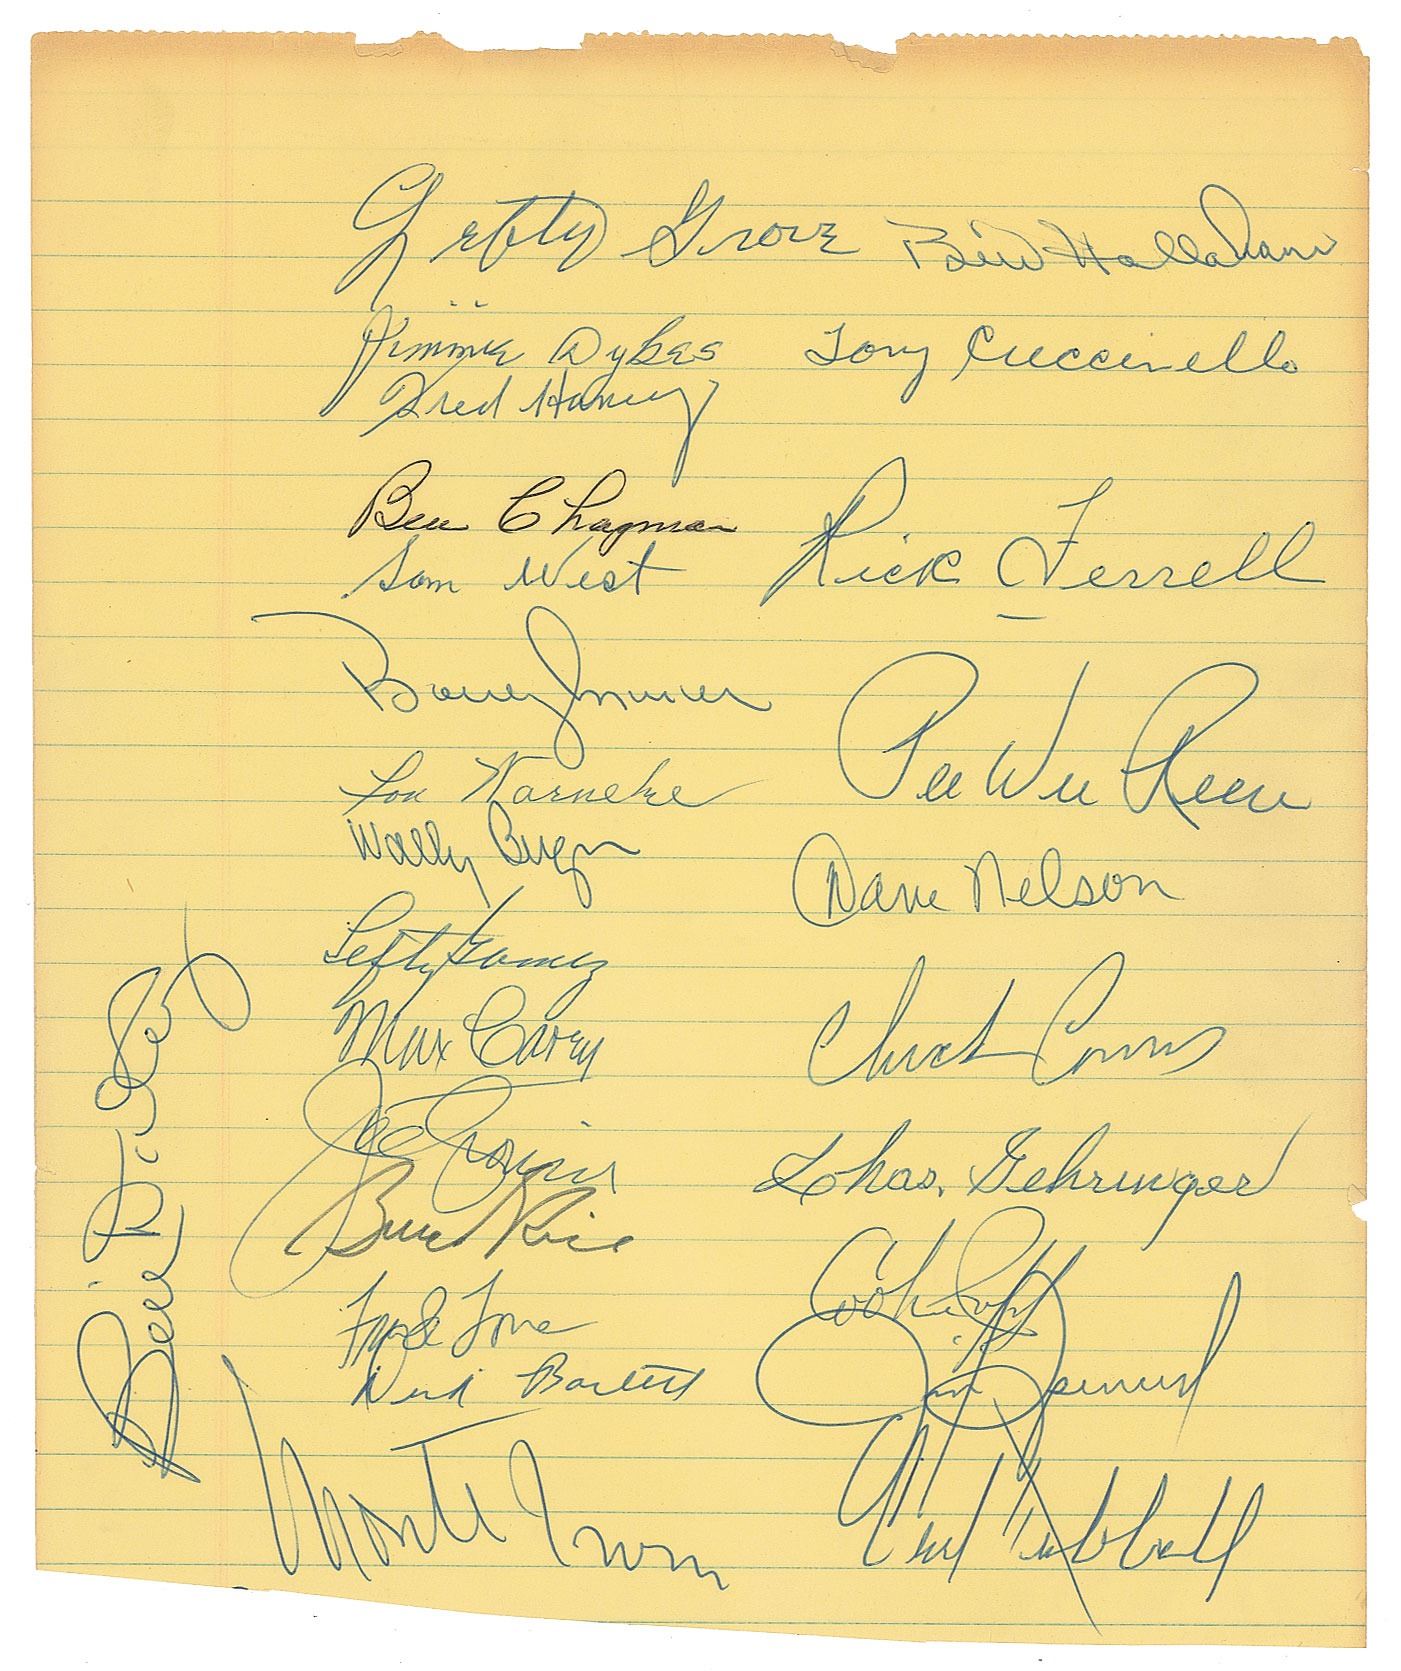 Lefty Grove Bill Hallahan
Jimmie Dykes Tony Cuccinello
Fred Haney
Ben Chapman
Sam West Rick Ferrell
Pee Wee Reese
Lon Warneke
Wally Berger
Dave Nelson
Lefty Gomez
Max Carey
Chuck Connors
Joe Cronin
Chas. Gehringer
Rice
Cookie
Dick Bartell
Monte Irvin
Carl Hubbell
Bill Dickey